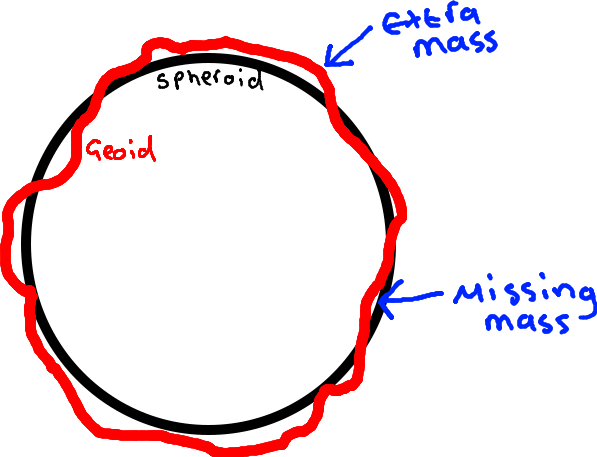 Extra
mass
Spheroid
Geoid
Missing
mass